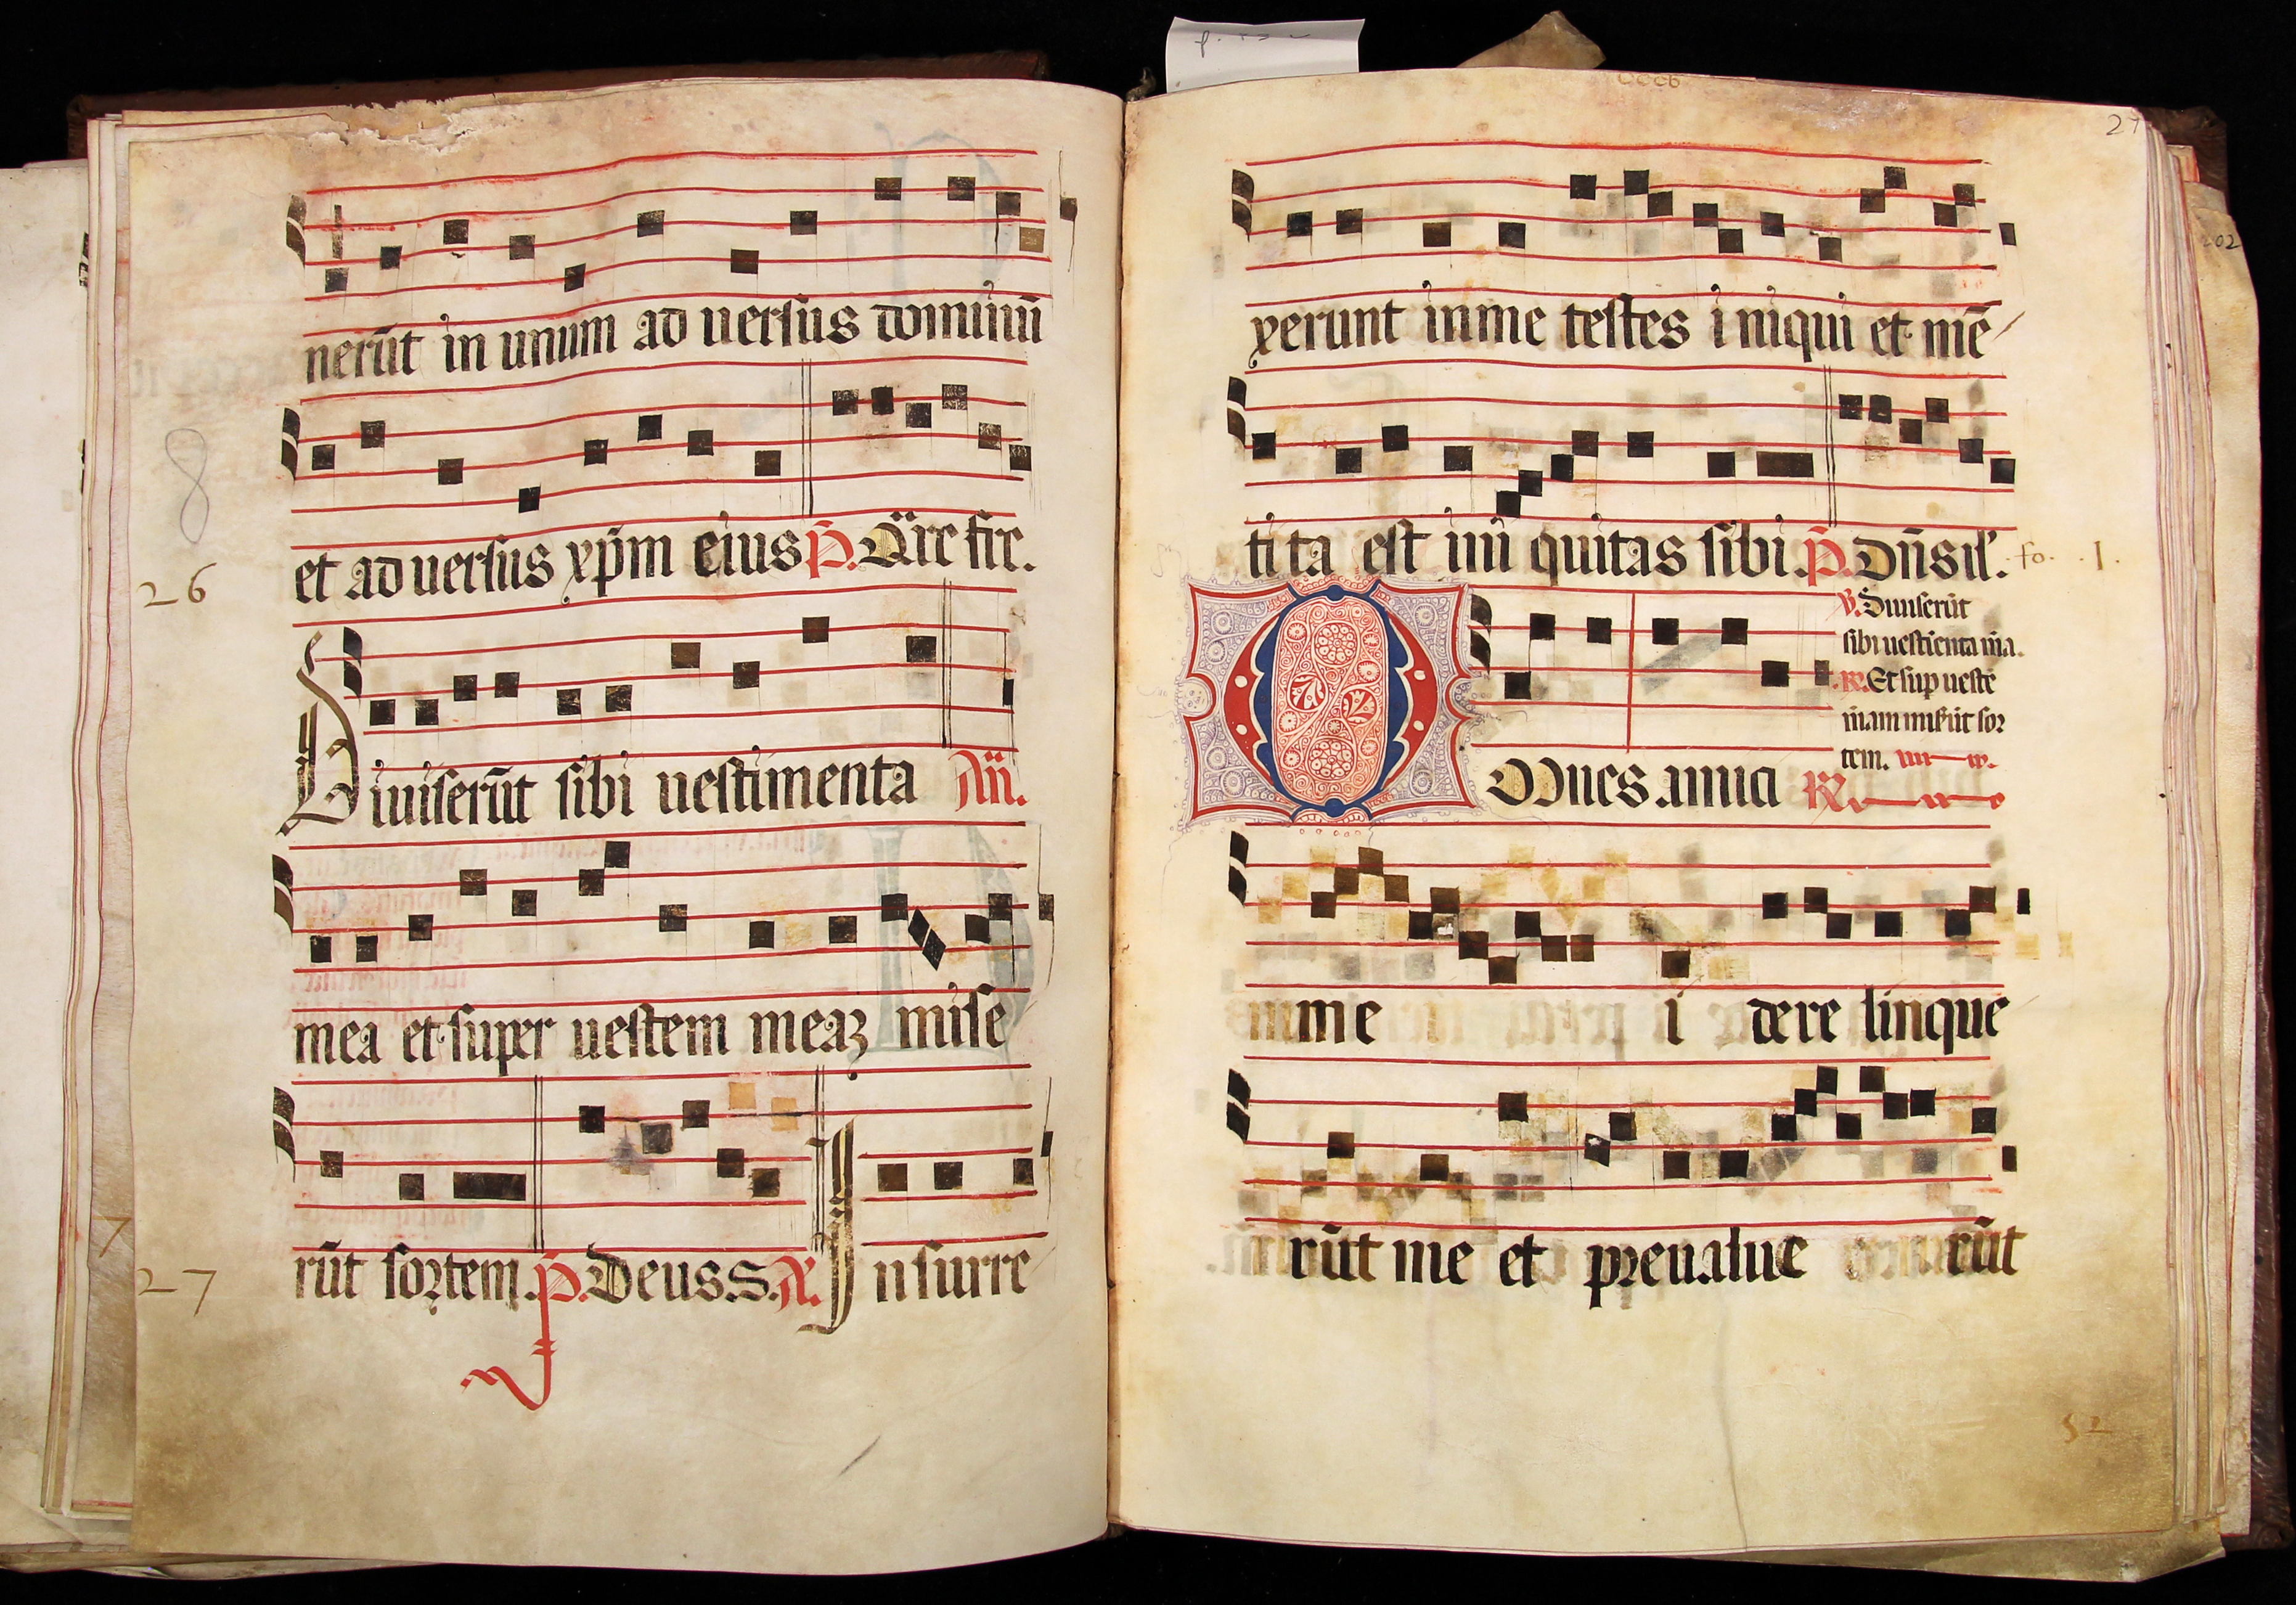 nerūt in unum ad uersus dominū
et ad uersus xp̄m eius p̄. Q̈re fre.
8
26
Diuiserūt sibi uestimenta An̄.
mea et super uestem meaꝫ mise
rūt sortem. p̄. Deus. S. A. Insurre
7
27
27
xerunt in me testes i niqui et mē
ti ta est ini quitas sibi. p̄. Dn̄s il. fo. .1.
V. Diuiserūt
sibi uestienta m̄a.
R. Et sup ueste
m̄am miserūt sor
tem.
Omnes amici R
me i dere linque
rūt me et preualue rūt
52
202